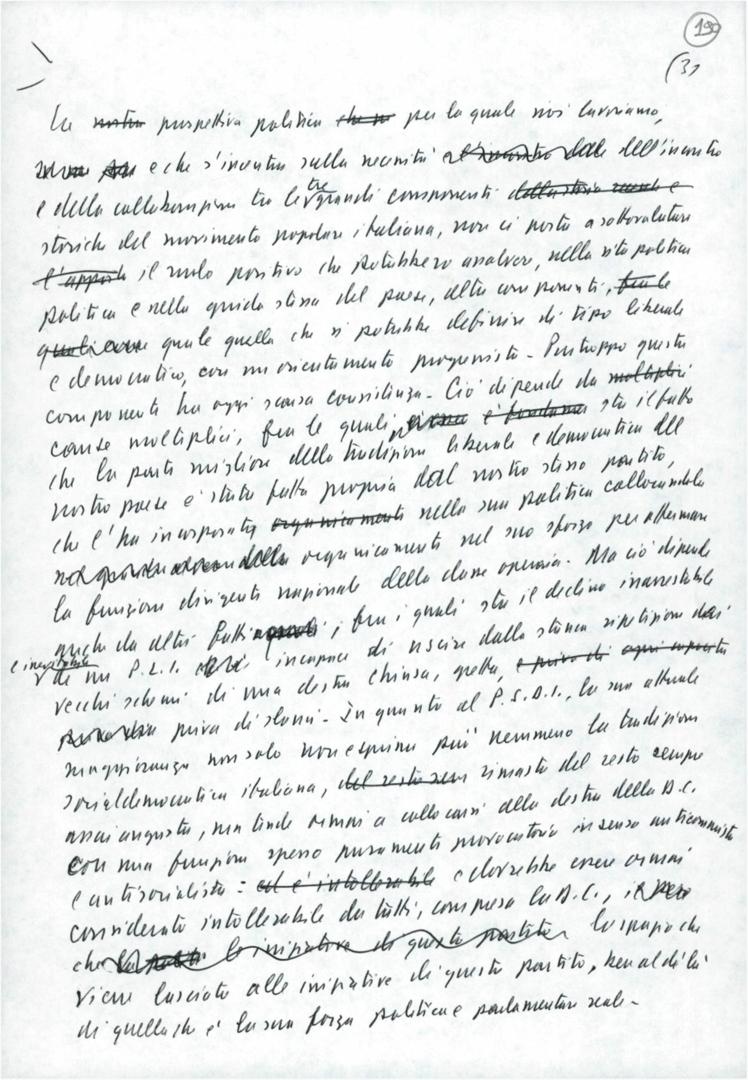 190
(3)
La nostra prospettiva politica che per la quale noi lavoriamo,
e che s'incentra sulla necessità dell'incontro
e della collaborazione tra le tre grandi componenti della storia
storiche del movimento popolare italiano, non ci porta a sottovalutare
l'apporto il ruolo positivo che potrebbero assolvere, nella vita politica
politica e nella guida stessa del paese, altre componenti, fra le
quali come quale quella che si potrebbe definire di tipo liberale
e democratico, con un orientamento progressista - Purtroppo questa
componente ha oggi scarsa consistenza - Ciò dipende da molteplici
cause molteplici, fra le quali sta il fatto
che la parte migliore della tradizione liberale e democratica del
nostro paese è stata fatta propria dal nostro stesso partito,
che l'ha incorporata organicamente nella sua politica collocandola
organicamente nel suo sforzo per affermare
la funzione dirigente nazionale della classe operaia. Ma ciò dipende
anche da altri fatti, fra i quali sta il declino inarrestabile
di un P.L.I. incapace di uscire dalla stanca ripetizione dei
vecchi schemi di una destra chiusa, gretta, e priva di ogni
priva di slanci - In quanto al P.S.D.I., la sua attuale
maggioranza non solo non esprime più nemmeno la tradizione
socialdemocratica italiana, del resto rimasta del resto sempre
assai angusta, ma tende ormai a collocarsi alla destra della D.C.
con una funzione spesso puramente provocatoria in senso anticomunista
e antisocialista: ed è intollerabile e dovrebbe essere ormai
considerato intollerabile da tutti, compresa la D.C.,
che le iniziative di questo partito lo spazio che
viene lasciato alle iniziative di questo partito, ben al di là
di quella che è la sua forza politica e parlamentare reale -